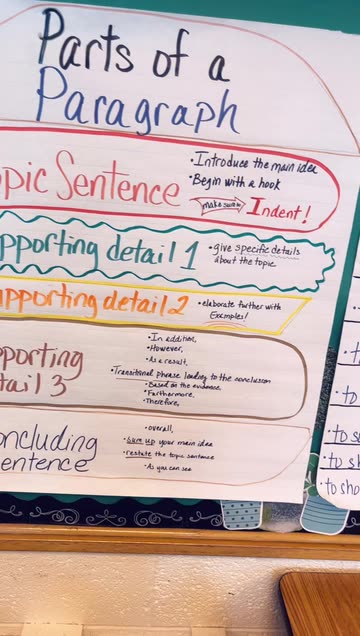 Parts of a
Paragraph
opic Sentence
• Introduce the main idea
• Begin with a hook
make sure to Indent!
pporting detail 1
• give specific details
about the topic
upporting detail 2
• elaborate further with
Examples!
pporting
tail 3
• In addition,
• However,
• As a result,
• Transitional phrase leading to the conclusion
• Based on the evidence
• Furthermore,
• Therefore,
oncluding
entence
• overall,
• sum up your main idea
• restate the topic sentence
• As you can see
• to
• to s
• to sh
• to sho